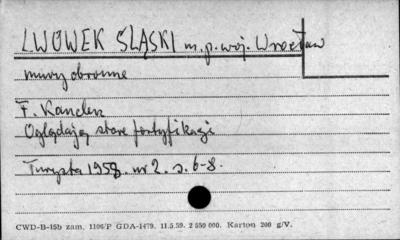 LWÓWEK ŚLĄSKI m.p. woj. Wrocław
mury obronne
F. Kancler
Oglądają stare fortyfikacje
Turysta 1958. nr 2. s. 6-8.
CWD-B-15b zam. 1106/P GDA-1479. 11.5.59. 2 550 000. Karton 200 g/V.